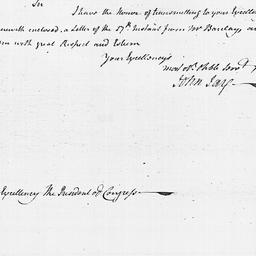 Sir
I have the honor of transmitting to your Excellen
herewith enclosed, a Letter of the 17th Instant from Mr Barclay an
am with great Respect and Esteem
Your Excellency's
most Obt & hble Servt
John Jay
Excellency The President of Congress